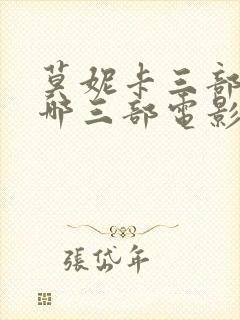 莫妮卡三部
哪三部電影
張岱年